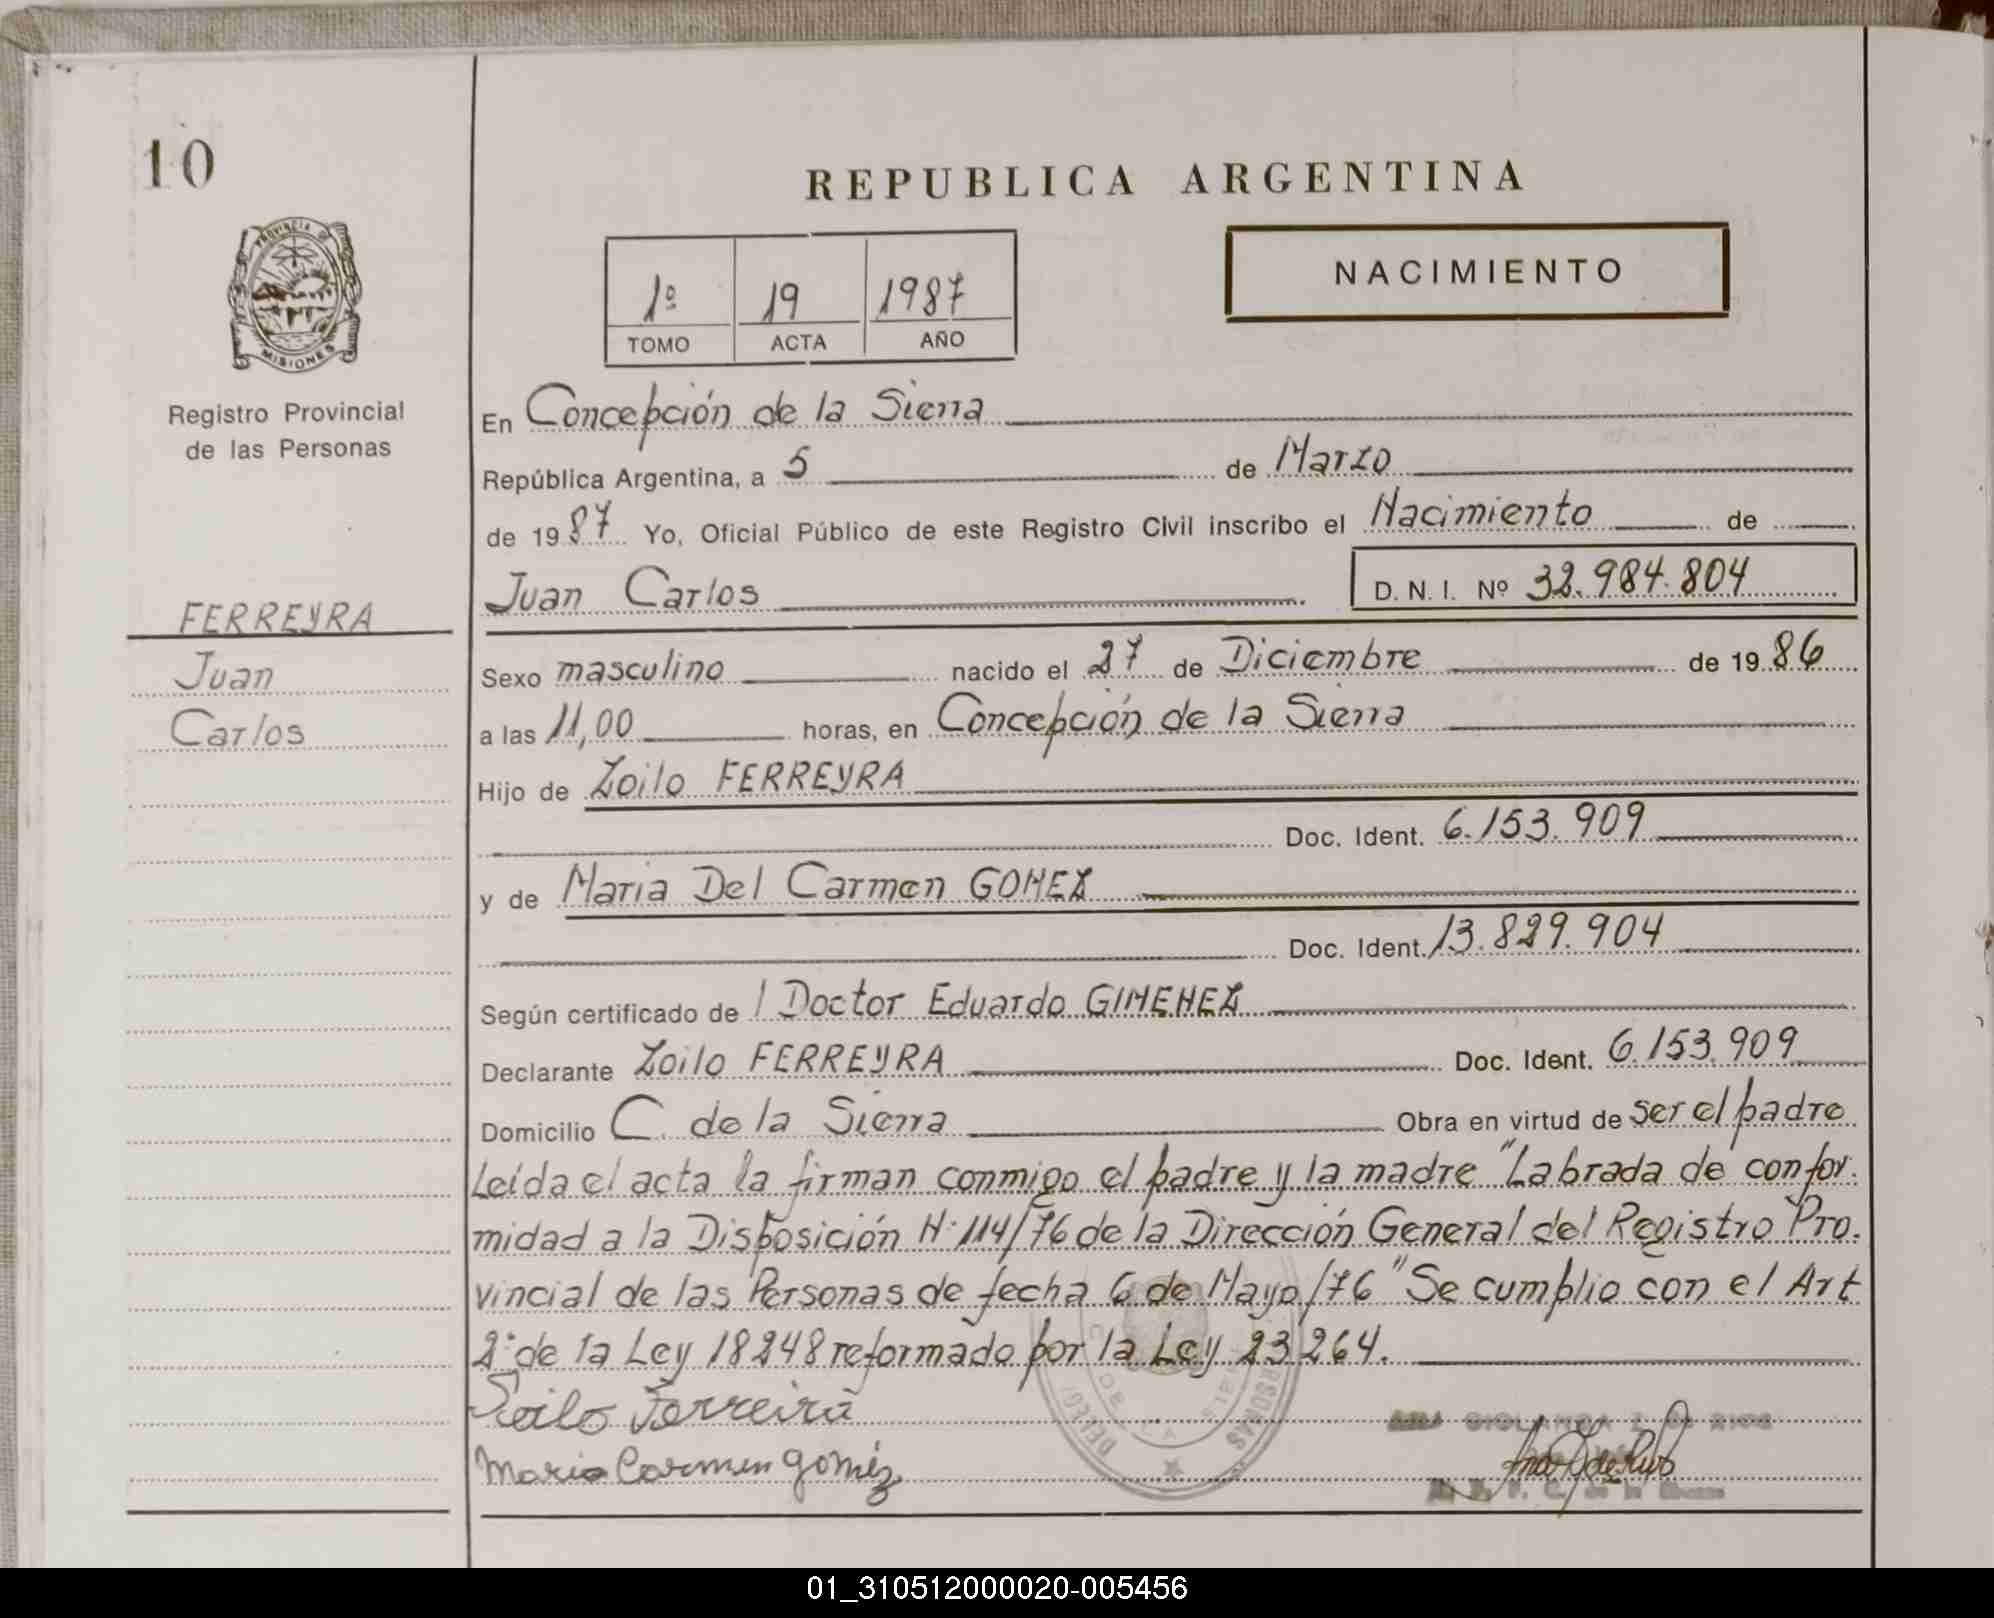 10
REPUBLICA ARGENTINA
PROVINCIA DE
MISIONES
Registro Provincial
de las Personas
1º 19 1987
TOMO ACTA AÑO
NACIMIENTO
En Concepción de la Sierra
República Argentina, a 5 de Marzo
de 1987 Yo, Oficial Público de este Registro Civil inscribo el Nacimiento de
Juan Carlos D. N. I. Nº 32.984.804
FERREYRA
Juan
Carlos
Sexo masculino nacido el 27 de Diciembre de 1986
a las 11,00 horas, en Concepción de la Sierra
Hijo de Zoilo FERREYRA
Doc. Ident. 6.153.909
y de Maria Del Carmen GOMEZ
Doc. Ident. 13.829.904
Según certificado de l Doctor Eduardo GIMENEZ
Declarante Zoilo FERREYRA Doc. Ident. 6.153.909
Domicilio C. de la Sierra Obra en virtud de ser el padre
Leída el acta la firman conmigo el padre y la madre "Labrada de confor.
midad a la Disposición N: 114/76 de la Dirección General del Registro Pro.
vincial de las Personas de fecha 6 de Mayo/76" Se cumplio con el Art
2º de la Ley 18248 reformado por la Ley 23264.
Soilo Ferreira
Maria Carmen gomez
01_310512000020-005456